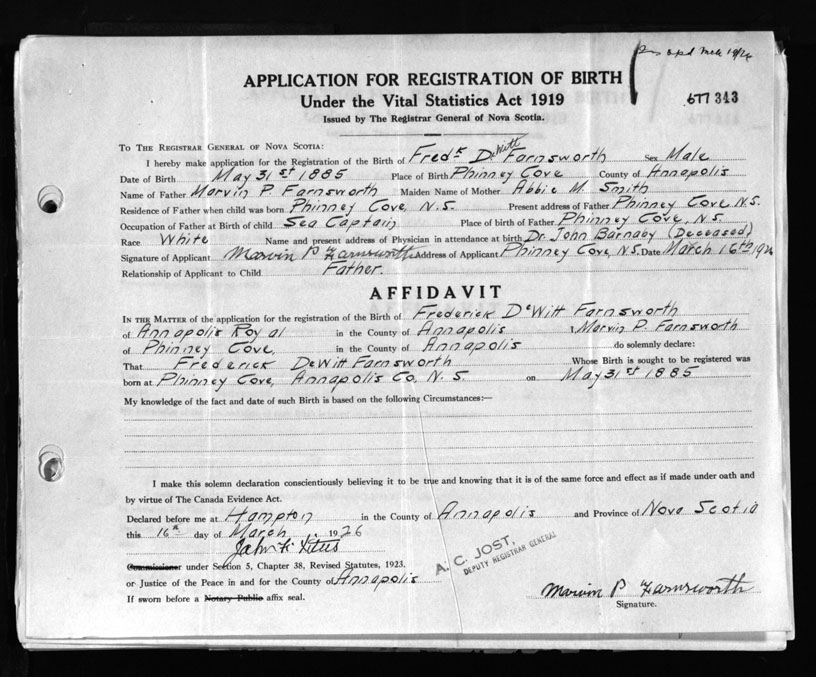 opd Mch 19/26
APPLICATION FOR REGISTRATION OF BIRTH
Under the Vital Statistics Act 1919
677 343
Issued by The Registrar General of Nova Scotia.
TO THE REGISTRAR GENERAL OF NOVA SCOTIA:
I hereby make application for the Registration of the Birth of Fredk DeWitt Farnsworth Sex Male
Date of Birth May 31st 1885 Place of Birth Phinney Cove County of Annapolis
Name of Father Marvin P Farnsworth Maiden Name of Mother Abbie M. Smith
Residence of Father when child was born Phinney Cove, N.S. Present address of Father Phinney Cove N.S.
Occupation of Father at Birth of child Sea Captain Place of birth of Father Phinney Cove, N.S.
Race White Name and present address of Physician in attendance at birth Dr John Barnaby (Deceased)
Signature of Applicant Marvin P Farnsworth Address of Applicant Phinney Cove, N.S. Date March 16th 1926
Relationship of Applicant to Child Father.
AFFIDAVIT
IN THE MATTER of the application for the registration of the Birth of Frederick DeWitt Farnsworth
of Annapolis Royal in the County of Annapolis I Marvin P. Farnsworth
of Phinney Cove, in the County of Annapolis do solemnly declare:
That Frederick DeWitt Farnsworth Whose Birth is sought to be registered was
born at Phinney Cove, Annapolis Co, N. S. on May 31st 1885
My knowledge of the fact and date of such Birth is based on the following Circumstances:—
I make this solemn declaration conscientiously believing it to be true and knowing that it is of the same force and effect as if made under oath and
by virtue of The Canada Evidence Act.
Declared before me at Hampton in the County of Annapolis and Province of Nova Scotia
this 16th day of March 1926
John Titus
Commissioner under Section 5, Chapter 38, Revised Statutes, 1923.
A. C. JOST,
DEPUTY REGISTRAR GENERAL
or Justice of the Peace in and for the County of Annapolis
If sworn before a Notary Public affix seal.
Marvin P Farnsworth
Signature.